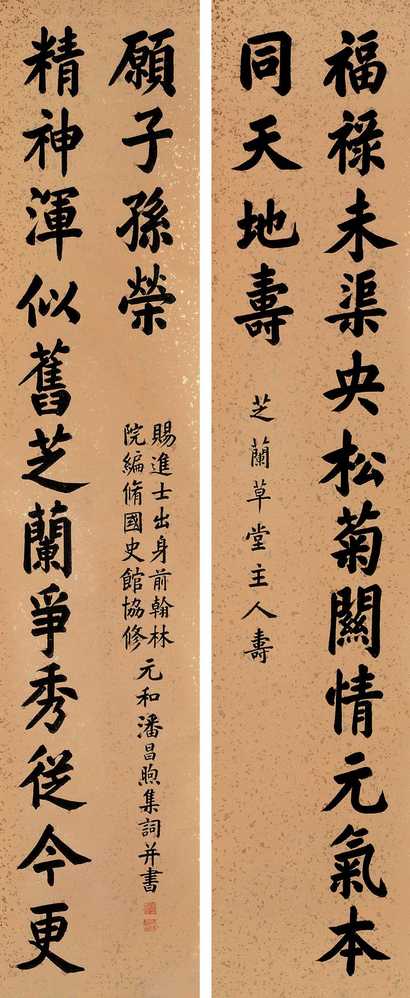 福祿未渠央松菊關情元氣本
同天地壽
芝蘭草堂主人壽
精神渾似舊芝蘭爭秀從今更
願子孫榮
賜進士出身前翰林
院編脩國史館協修
元和潘昌煦集詞并書